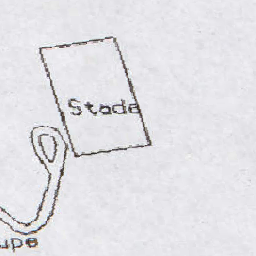 Stade
upe